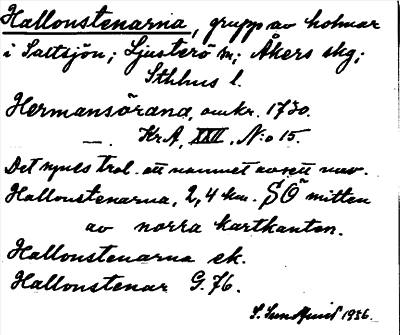 Hallonstenarna, grupp av holmar
i Saltsjön; Ljusterö sn; Åkers skg;
Sthlms l.
Hermansörarna, omkr. 1730.
— . KrA, XXII, N:o 15.
Det synes trol. att namnet avsett nuv.
Hallonstenarna, 2,4 km. SO mitten
av norra kartkanten.
Hallonstenarna ek.
Hallonstenar G.76.
S. Sundquist 1936.